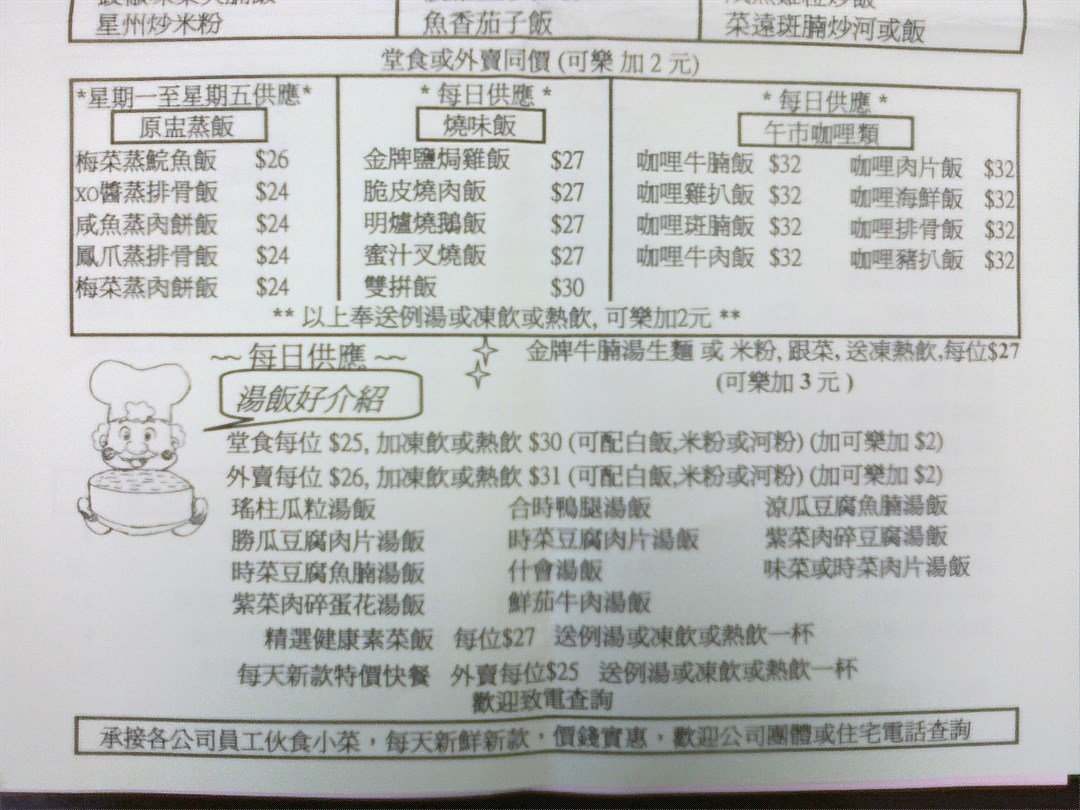 星州炒米粉 魚香茄子飯 菜遠斑腩炒河或飯
堂食或外賣同價 (可樂 加 2 元)
*星期一至星期五供應*
原盅蒸飯
梅菜蒸鯇魚飯 $26
xo醬蒸排骨飯 $24
咸魚蒸肉餅飯 $24
鳳爪蒸排骨飯 $24
梅菜蒸肉餅飯 $24
* 每日供應 *
燒味飯
金牌鹽焗雞飯 $27
脆皮燒肉飯 $27
明爐燒鵝飯 $27
蜜汁叉燒飯 $27
雙拼飯 $30
* 每日供應 *
午市咖哩類
咖哩牛腩飯 $32 咖哩肉片飯 $32
咖哩雞扒飯 $32 咖哩海鮮飯 $32
咖哩斑腩飯 $32 咖哩排骨飯 $32
咖哩牛肉飯 $32 咖哩豬扒飯 $32
** 以上奉送例湯或凍飲或熱飲, 可樂加2元 **
金牌牛腩湯生麵 或 米粉, 跟菜, 送凍熱飲,每位$27
(可樂加 3 元 )
~~ 每日供應 ~~
湯飯好介紹
堂食每位 $25, 加凍飲或熱飲 $30 (可配白飯,米粉或河粉) (加可樂加 $2)
外賣每位 $26, 加凍飲或熱飲 $31 (可配白飯,米粉或河粉) (加可樂加 $2)
瑤柱瓜粒湯飯 合時鴨腿湯飯 涼瓜豆腐魚腩湯飯
勝瓜豆腐肉片湯飯 時菜豆腐肉片湯飯 紫菜肉碎豆腐湯飯
時菜豆腐魚腩湯飯 什會湯飯 味菜或時菜肉片湯飯
紫菜肉碎蛋花湯飯 鮮茄牛肉湯飯
精選健康素菜飯 每位$27 送例湯或凍飲或熱飲一杯
每天新款特價快餐 外賣每位$25 送例湯或凍飲或熱飲一杯
歡迎致電查詢
承接各公司員工伙食小菜，每天新鮮新款，價錢實惠，歡迎公司團體或住宅電話查詢